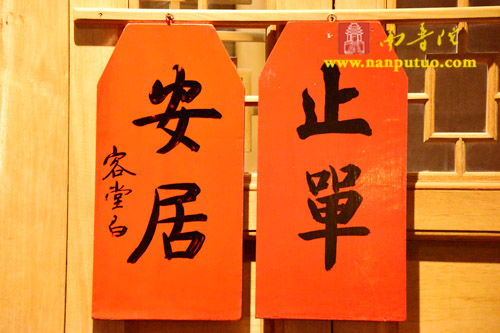 止單
安居
客堂白
南普陀
www.nanputuo.com